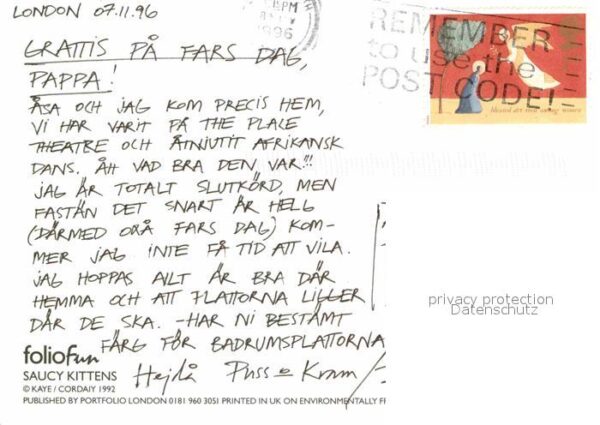 LONDON 07.11.96
8PM
1996
REMEMBER
to use the
POST CODE!
blessed art thou among women
GRATTIS PÅ FARS DAG,
PAPPA!
ÅSA OCH JAG KOM PRECIS HEM,
VI HAR VARIT PÅ THE PLACE
THEATRE OCH ÅTNJUTIT AFRIKANSK
DANS. ÅH VAD BRA DEN VAR!!!
JAG ÄR TOTALT SLUTKÖRD, MEN
FASTÄN DET SNART ÄR HELG
(DÄRMED OXÅ FARS DAG) KOM-
MER JAG INTE FÅ TID ATT VILA.
JAG HOPPAS ALLT ÄR BRA DÄR
HEMMA OCH ATT PLATTORNA LIGGER
DÄR DE SKA. - HAR NI BESTÄMT
FÄRG FÖR BADRUMSPLATTORNA
Hejdå Puss o Kram
folioFun
SAUCY KITTENS
© KAYE / CORDAIY 1992
PUBLISHED BY PORTFOLIO LONDON 0181 960 3051 PRINTED IN UK ON ENVIRONMENTALLY FR
privacy protection
Datenschutz